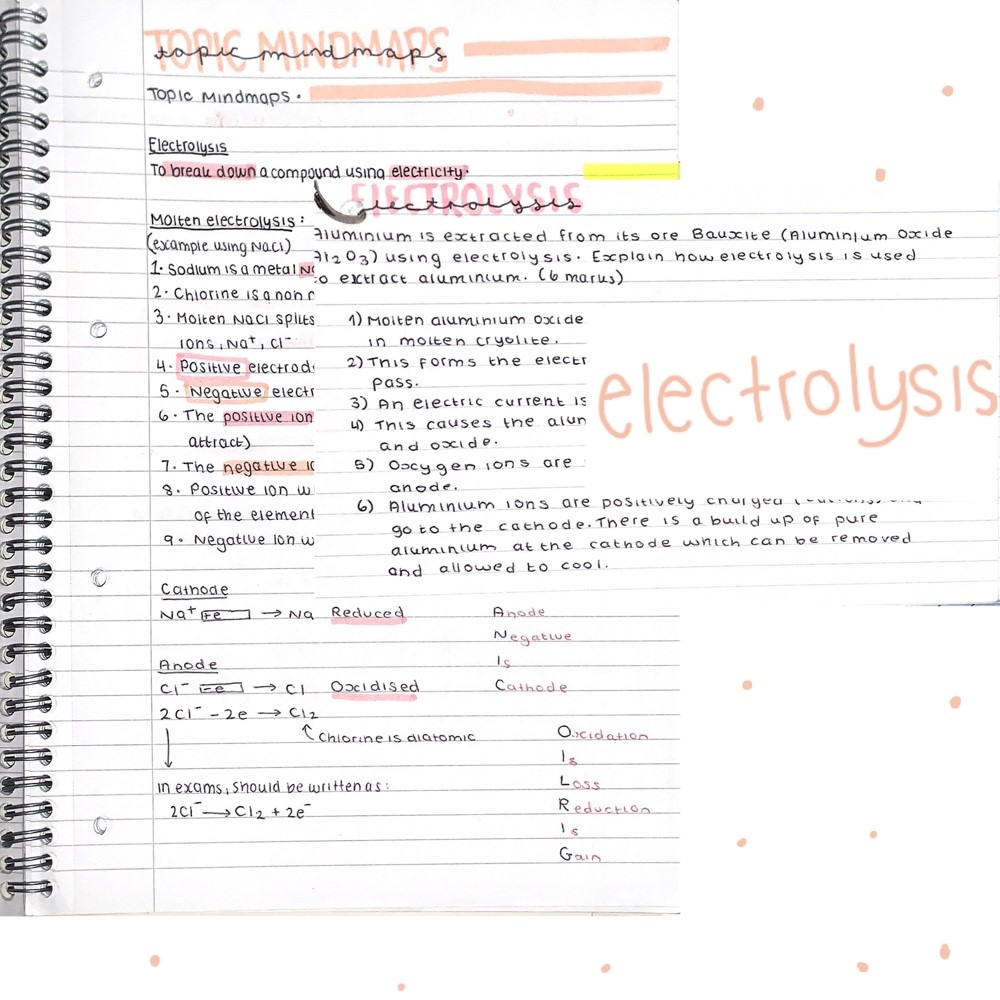 TOPIC MINDMAPS
topic mindmaps
Topic Mindmaps.
Electrolysis
To break down a compound using electricity.
Molten electrolysis:
(example using NaCl)
1. Sodium is a metal
2. Chlorine is a non
3. Molten NaCl splits
ions, Na⁺, Cl⁻
4. Positive
5. Negative
6. The positive ion
attract)
7. The negative
8. Positive ion w
of the element
9. Negative ion w
Cathode
Na⁺ → Na Reduced
Anode
Cl⁻ → Cl Oxidised
2Cl⁻ - 2e → Cl₂
Chlorine is diatomic
In exams, should be written as:
2Cl⁻ → Cl₂ + 2e⁻
Anode
Negative
Is
Cathode
Oxidation
Is
Loss
Reduction
Is
Gain
ELECTROLYSIS
electrolysis
Aluminium is extracted from its ore Bauxite (Aluminium Oxide
Al₂O₃) using electrolysis. Explain how electrolysis is used
to extract aluminium. (6 marks)
1) Molten aluminium oxide
in molten cryolite.
2) This forms the
pass.
3) An electric current is
4) This causes the
and oxide.
5) Oxygen ions are
anode.
6) Aluminium ions are positively charged
go to the cathode. There is a build up of pure
aluminium at the cathode which can be removed
and allowed to cool.
electrolysis